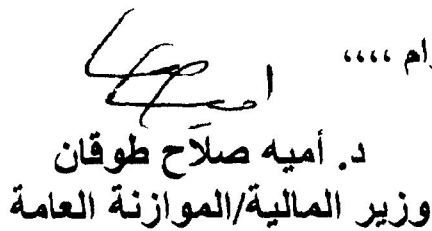 رام ،،،،
د. أميه صلاح طوقان
وزير المالية/الموازنة العامة